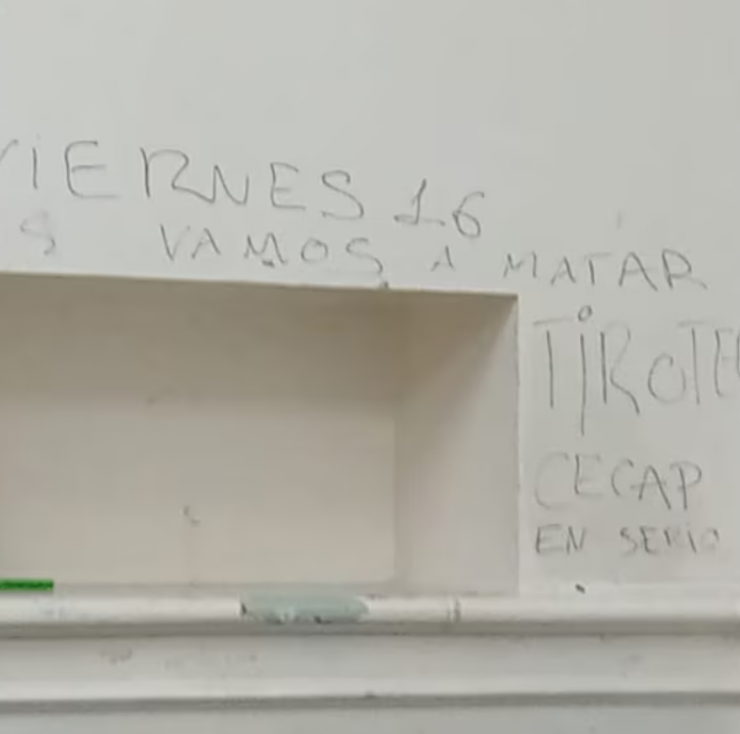 VIERNES 16
S VAMOS A MATAR
TIROTE
CECAP
EN SERIO